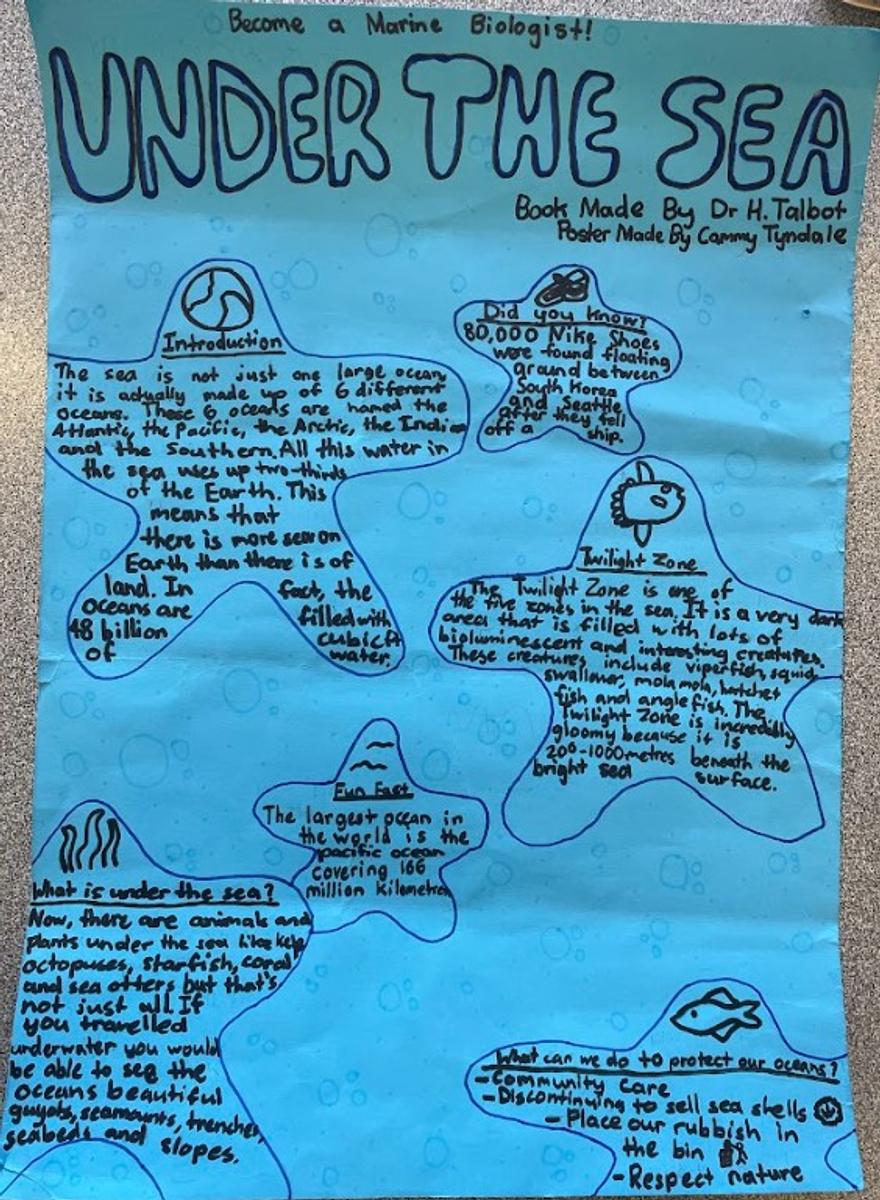 Become a Marine Biologist!
UNDER THE SEA
Book Made By Dr H. Talbot
Poster Made By Cammy Tyndale
Introduction
The sea is not just one large ocean,
it is actually made up of 6 different
oceans. These 6 oceans are named the
Atlantic, the Pacific, the Arctic, the Indian
and the Southern. All this water in
the sea uses up two-thirds
of the Earth. This
means that
there is more sea on
Earth than there is of
land. In fact, the
oceans are filled with
48 billion cubic ft
of water.
Did you know?
80,000 Nike Shoes
were found floating
around between
South Korea
and Seattle
after they fell
off a ship.
Twilight Zone
The Twilight Zone is one of
the five zones in the sea. It is a very dark
area that is filled with lots of
bioluminescent and interesting creatures.
These creatures include viperfish, squid,
swallower, mola mola, hatchet
fish and angle fish. The
Twilight Zone is incredibly
gloomy because it is
200-1000 metres beneath the
bright sea surface.
Fun Fact
The largest ocean in
the world is the
pacific ocean
covering 166
million Kilometres
What is under the sea?
Now, there are animals and
plants under the sea like kelp,
octopuses, starfish, coral
and sea otters but that's
not just all. If
you travelled
underwater you would
be able to see the
oceans beautiful
guyots, seamounts, trenches,
seabeds and slopes.
What can we do to protect our oceans?
- Community Care
- Discontinuing to sell sea shells
- Place our rubbish in
the bin
- Respect nature